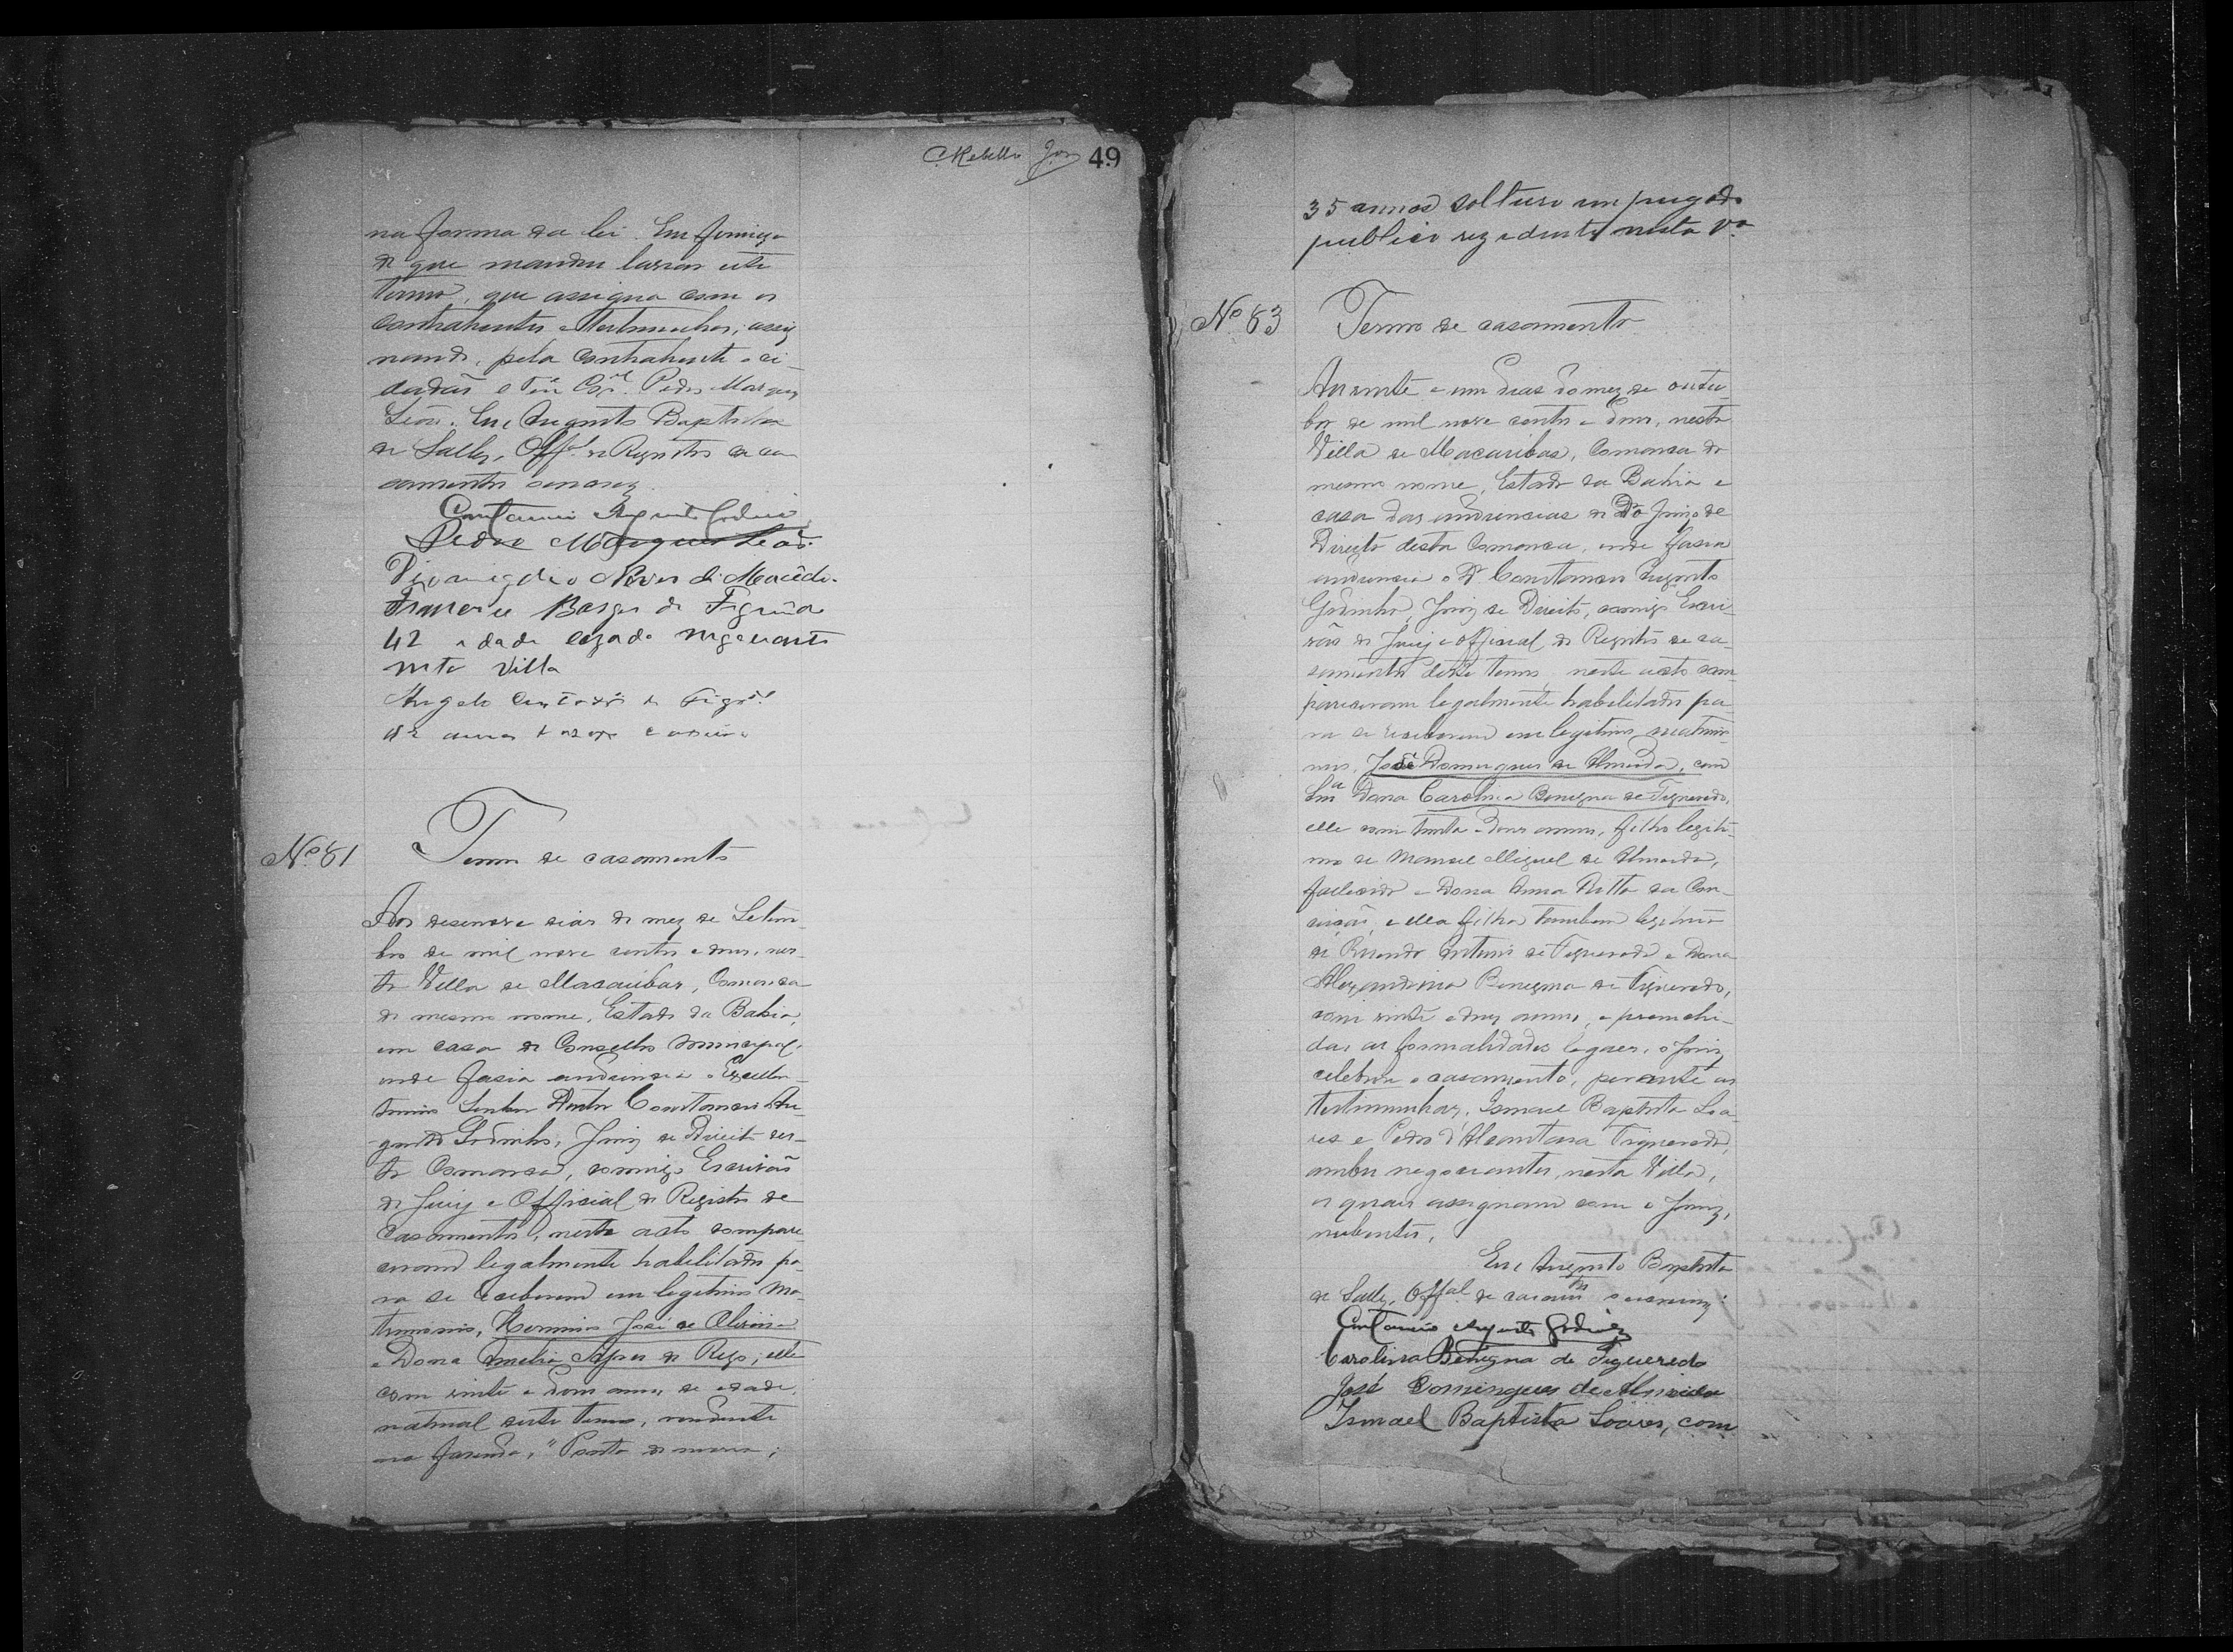 49
na forma da lei. Em firmeza
do que mandou lavrar este
termo, que assigna com os
contrahentes e testemunhas, assig
nando, pela contrahente o ci-
dadão e Ten. Cor.el Pedro Marques
Leão. Eu, Augusto Baptista
de Salles, Off.al do Registro de ca
samentos o escrevy.
Constancio Augusto Godinho
Pedro Marques Leão.
Neves de Macêdo.
Francisco Borges de Figueredo
42 edade cazado negociante
nesta Villa
Angelo Custodio de Figdo
annos
Nº 81
Termo de casamento
Aos desenove dias do mez de Setem
bro de mil nove centos e dous, nes-
ta Villa de Macaubas, Comarca
do mesmo nome, Estado da Bahia,
em casa do Conselho Municipal,
onde fasia audiencia o Excellen-
tissimo Senhor Doutor Constancio Au-
gusto Godinho, Juiz de Direito des-
ta Comarca, comigo Escrivão
do Jury e Official do Registro de
Casamentos, neste acto compare
ceram legalmente habilitados pa-
ra se receberem em legitimo Ma-
trimonio, Herminio José de Oliveira
e Dona Amelia do Rego; elle
com vinte e dous annos de edade,
natural deste termo, residente
na fasenda, "Ponta do morro,
35 annos solteiro empregado
publico rezedente nesta Va
Nº 83
Termo de casamento
Aos vinte e um dias do mez de outu-
bro de mil nove centos e dous, nesta
Villa de Macaubas, Comarca do
mesmo nome, Estado da Bahia e
casa das audiencias do Do Juiz de
Direito desta Comarca, onde fasia
audiencia o Dr Constancio Augusto
Godinho, Juiz de Direito, comigo Escri-
vão do Jury e official do Registro de ca-
samentos deste termo, neste acto com-
pareceram legalmente habilitados pa-
ra se receberem em legitimo matrimo-
nio, José Domingues de Almeida, com
Exma Dona Carolina Benigna de Figueredo,
elle com trinta e dous annos, filho legiti-
mo de Manoel Miguel de Almeida,
fallecido e Dona Anna Ritta da Con-
ceição, e ella filha tambem legitima
de Rosendo Antonio de Figueredo e Dona
Alexandrina Benigna de Figueredo,
com vinte e dous annos, e preenchi-
das as formalidades legaes, o Juiz
celebrou o casamento, perante as
testimunhas, Ismael Baptista Soa-
res e Pedro d'Alcantara Figueredo,
ambos negociantes, nesta Villa,
os quaes assignam com o Juiz,
nubentes,
Eu, Augusto Baptista
de Salles, Offal de casamtos o escrevy.
Constancio Augusto Godinho
Carolina Benigna de Figueredo
José Domingues de Almeida
Ismael Baptista Soares, com